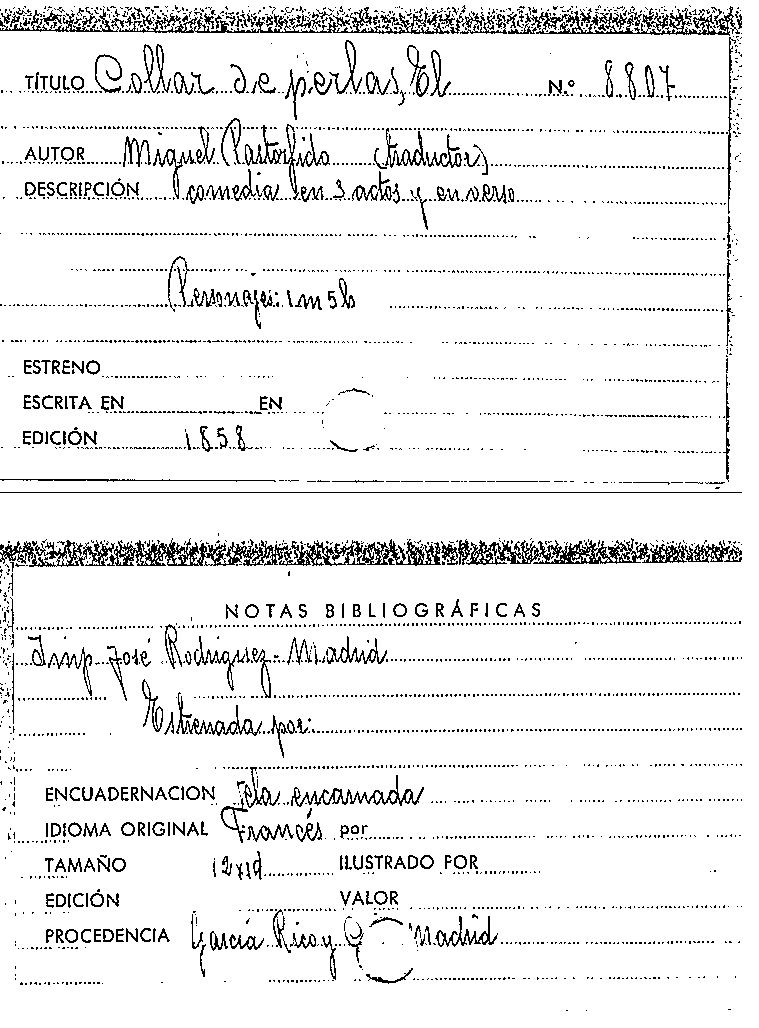 TÍTULO Collar de perlas, El N.º 8.807
AUTOR Miguel Pastorfido (traductor)
DESCRIPCIÓN comedia en 3 actos y en verso
Personajes: 1 m 5 h
ESTRENO
ESCRITA EN EN
EDICIÓN 1858
NOTAS BIBLIOGRÁFICAS
Imp. José Rodriguez - Madrid
Estrenada por:
ENCUADERNACION Tela encarnada
IDIOMA ORIGINAL Francés por
TAMAÑO ILUSTRADO POR
EDICIÓN VALOR
PROCEDENCIA García Rico y Madrid